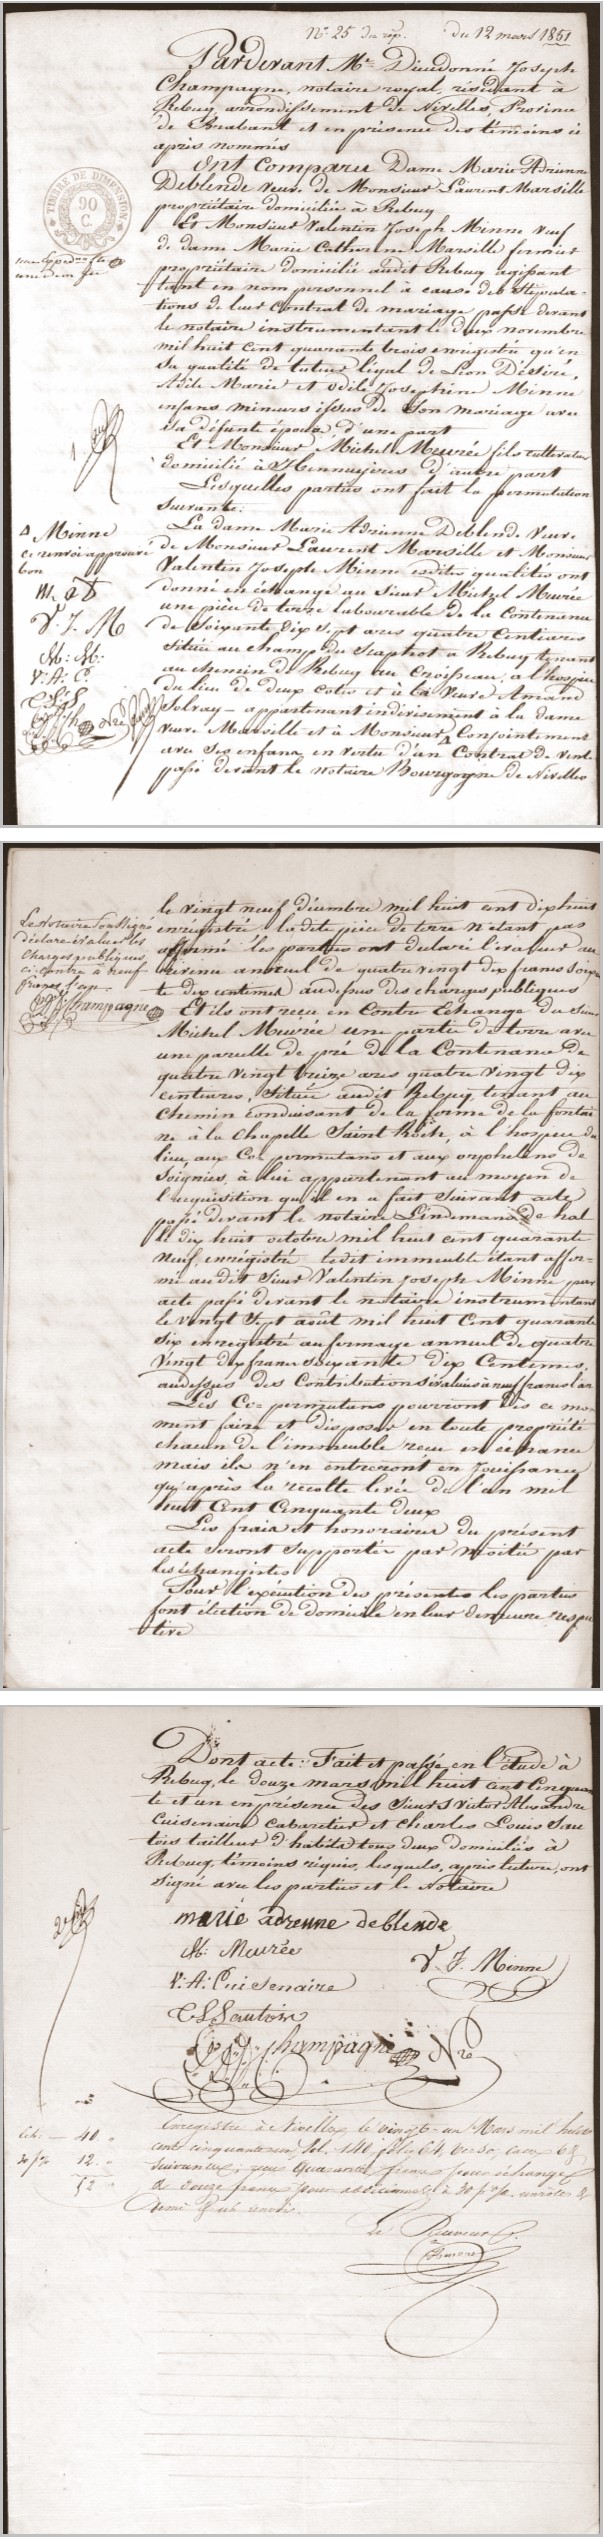 N° 25 du rép. du 12 mars 1851
Pardevant Me Dieudonné Joseph
Champagne, notaire royal, résidant à
Rebecq, arrondissement de Nivelles, Province
de Brabant et en présence des témoins ci
après nommés
Ont comparu Dame Marie Adrienne
Deblende veuve de Monsieur Laurent Marsille
propriétaire domiciliée à Rebecq
TIMBRE DE DIMENSION
90
C.
Et Monsieur Valentin Joseph Minne veuf
de dame Marie Catherine Marsille fermier
propriétaire domicilié audit Rebecq agissant
tant en nom personnel à cause des stipula-
tions de leur contrat de mariage passé devant
le notaire instrumentant le deux novembre
mil huit cent quarante trois enregistré qu'en
sa qualité de tuteur légal de Léon Désiré,
Adile Marie et Odile Josephine Minne
enfans mineurs issus de son mariage avec
sa défunte épouse d'une part
Et Monsieur Michel Meurée fils cultivateur
domicilié à Hennuyères d'autre part
Lesquelles parties ont fait la permutation
suivante:
La dame Marie Adrienne Deblende veuve
de Monsieur Laurent Marsille et Monsieur
Valentin Joseph Minne esdites qualités ont
donné en échange au sieur Michel Meurée
une pièce de terre labourable de la contenance
de soixante dix sept ares quatre centiares
située au champ du Scaphot à Rebecq tenant
au chemin de Rebecq au Croiseau, à l'hospice
du lieu de deux cotés et à la veuve Amand
Solvay – appartenant indivisement à la dame
veuve Marsille et à Monsieur conjointement
avec ses enfans en vertu d'un contrat de vente
passé devant le notaire Bourgogne de Nivelles
Minne
ce renvoi approuvé
bon
m. a D
V. J. M
M: M:
V: A: C.
C L S
le vingt neuf décembre mil huit cent dix huit
enrégistré la dite pièce de terre n'étant pas
affermé les parties ont déclaré l'évaluer au
revenu annuel de quatre vingt dix francs soixan
te dix centimes audessus des charges publiques
Le Notaire soussigné
déclare évaluer les
charges publiques
ci contre à neuf
francs l'an.
Champagne
Et ils ont reçu en contre échange du sieur
Michel Meurée une partie de terre avec
une parcelle de pré de la contenance de
quatre vingt treize ares quatre vingt dix
centiares, située audit Rebecq, tenant au
chemin conduisant de la ferme de la fontai
ne à la chapelle Saint Roch, à l'hospice du
lieu, aux Co= permutans et aux orphelins de
Soignies, à lui appartenant au moyen de
l'acquisition qu'il en a fait suivant acte
passé devant le notaire Lindemans de hal
le dix huit octobre mil huit cent quarante
neuf, enrégistré ledit immeuble étant affer-
mé au dit sieur Valentin Joseph Minne par
acte passé devant le notaire instrumentant
le vingt sept août mil huit cent quarante
six enregistré au fermage annuel de quatre
vingt dix francs soixante dix centimes.
audessus des contributions évaluées à neuf francs l'an
Les Co= permutans pourront dès ce mo
ment faire et disposer en toute propriété
chacun de l'immeuble reçu en échange
mais ils n'en entreront en jouissance
qu'après la récolte levée de l'an mil
huit cent cinquante deux
Les frais et honoraires du présent
acte seront supportés par moitié par
les échangistes
Pour l'exécution des présentes les parties
font élection de domicile en leur demeure respec
tive
Dont acte: Fait et passé en l'étude à
Rebecq, le douze mars mil huit cent cinquan
te et un en présence des Sieurs Victor Alexandre
Cuisenaire cabaretier et Charles Louis Sau
tois tailleur d'habits tous deux domiciliés à
Rebecq, témoins réquis, lesquels, après lecture, ont
signé avec les parties et le Notaire
marie adrenne deblende
M: Meurée
V. J. Minne
V: A: Cuisenaire
C L Sautois
Champagne Nre
Enregistré à Nivelles, le vingt-un Mars mil huit
cent cinquante un, vol. 140, folio 64, verso, case 6 &
suivantes; reçu quarante francs pour échange
& douze francs pour additionnels à 30 p%.
Ech: — 40 "
30 p% 12 "
52 "
Le Receveur